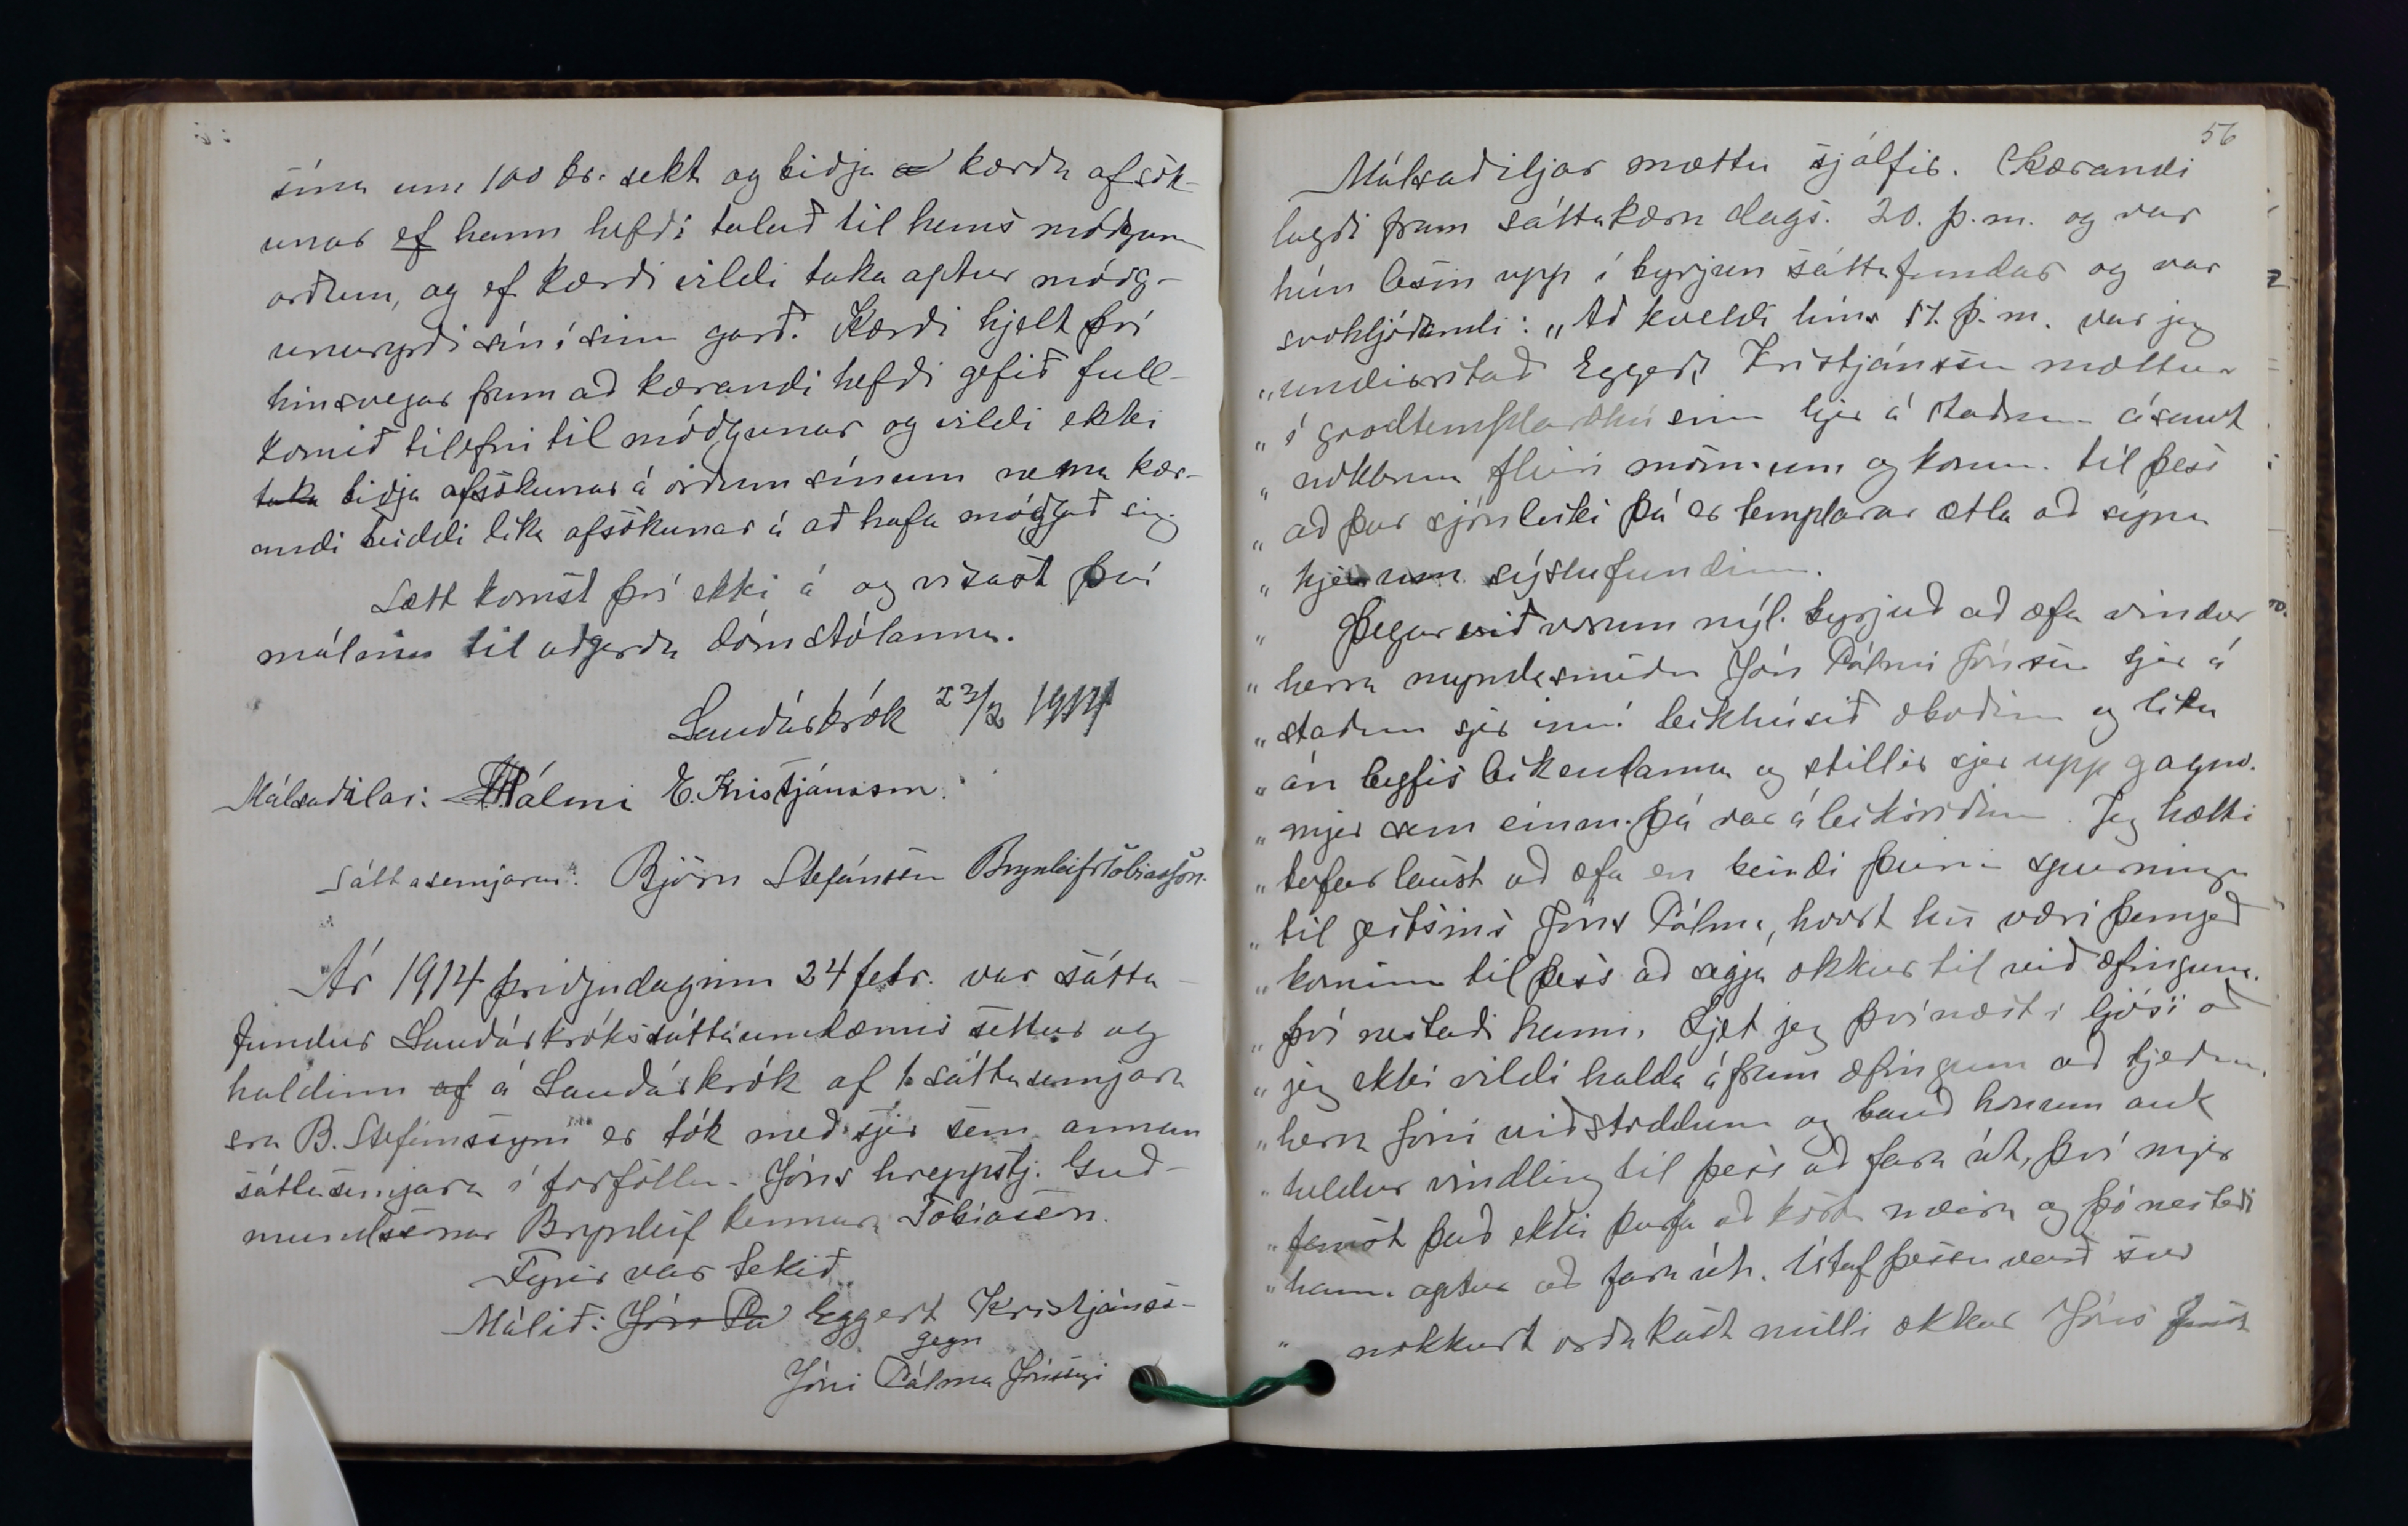 sína um 100 kr. sekt og biðja kærða afsök-
unar ef hann hefði talað til hans móðgun
orðum, og ef kærði vildi taka aptur móðg-
unaryrði sín í sinn garð. Kærði hjelt því
hinsvegar fram að kærandi hefði gefið full-
komið tilefni til móðgunar og vildi ekki
taka biðja afsökunar á orðum sínum nema kær-
andi beiddi líka afsökunar á að hafa móðgað sig.
Sætt komst því ekki á og vísast því
málinu til aðgerða dómstólanna.
Sauðárkrók 23/2 1914
Málsaðilar: JPálmi E. Kristjánsson.
Sáttasemjarar: Björn Stefánsson Brynleifr Tobiasson.
Ár 1914 þriðjudaginn 24 febr. var sátta-
fundur Sauðárkrókssáttaumdæmis settur og
haldinn af á Sauðárkrók af 1. sáttasemjara
sra B. Stefánssyni er tók með sjer sem annan
sáttasemjara í forföllum Jóns hreppstj. Guð-
mundssonar Brynleif kennara Tobiasson.
Fyrir var tekið
Málið: Jón Pa Eggert Kristjánss-
gegn
Jóni Pálma Jónssyni
56
Málsaðiljar mættu sjálfir. Kærandi
lagði fram sáttakæru dags. 20. þ.m. og var
hún lesin upp í byrjun sáttafundar og var
svohljóðandi: „Að kveldi hins 17. þ.m. var jeg
„undirritað Eggert Kristjánsson mættur
„í goodtemplarahúsinu hjer á staðnum ásamt
„nokkrum fleiri mönnum og konum til þess
„að þar sjónleiki þá er templarar ætla að sýna
„hjer um sýslufundinn.
„Þegar við vorum nýl. byrjuð að æfa vindur
„herra myndasmiður Jón Pálmi Jónsson hjer á
„staðnum sjer inní leikhúsið óboðinn og líka
„án leyfis leikendanna og stillir sjer upp gagnv.
„mjer sem einm. þá var á leiksviðinu. Jeg hætti
„tafarlaust að æfa en beindi þeirri spurningu
„til gestsins Jóns Pálma, hvort hú væri þangað
„kominn til þess að segja okkur til við æfinguna.
„því neitaði hann. Ljet jeg þvínæst í ljósi að
„jeg ekki vildi halda áfram æfingum að hjeðan
„herra Jóni viðstöddum og bauð honum auk
„heldur vindling til þess að fara út, því mjer
„fannst það ekki þurfa að kosta meira og þó neitaði
„hann aptur að fara út. Útaf þessu varð svo
„nokkurt orðakast milli okkar Jóns